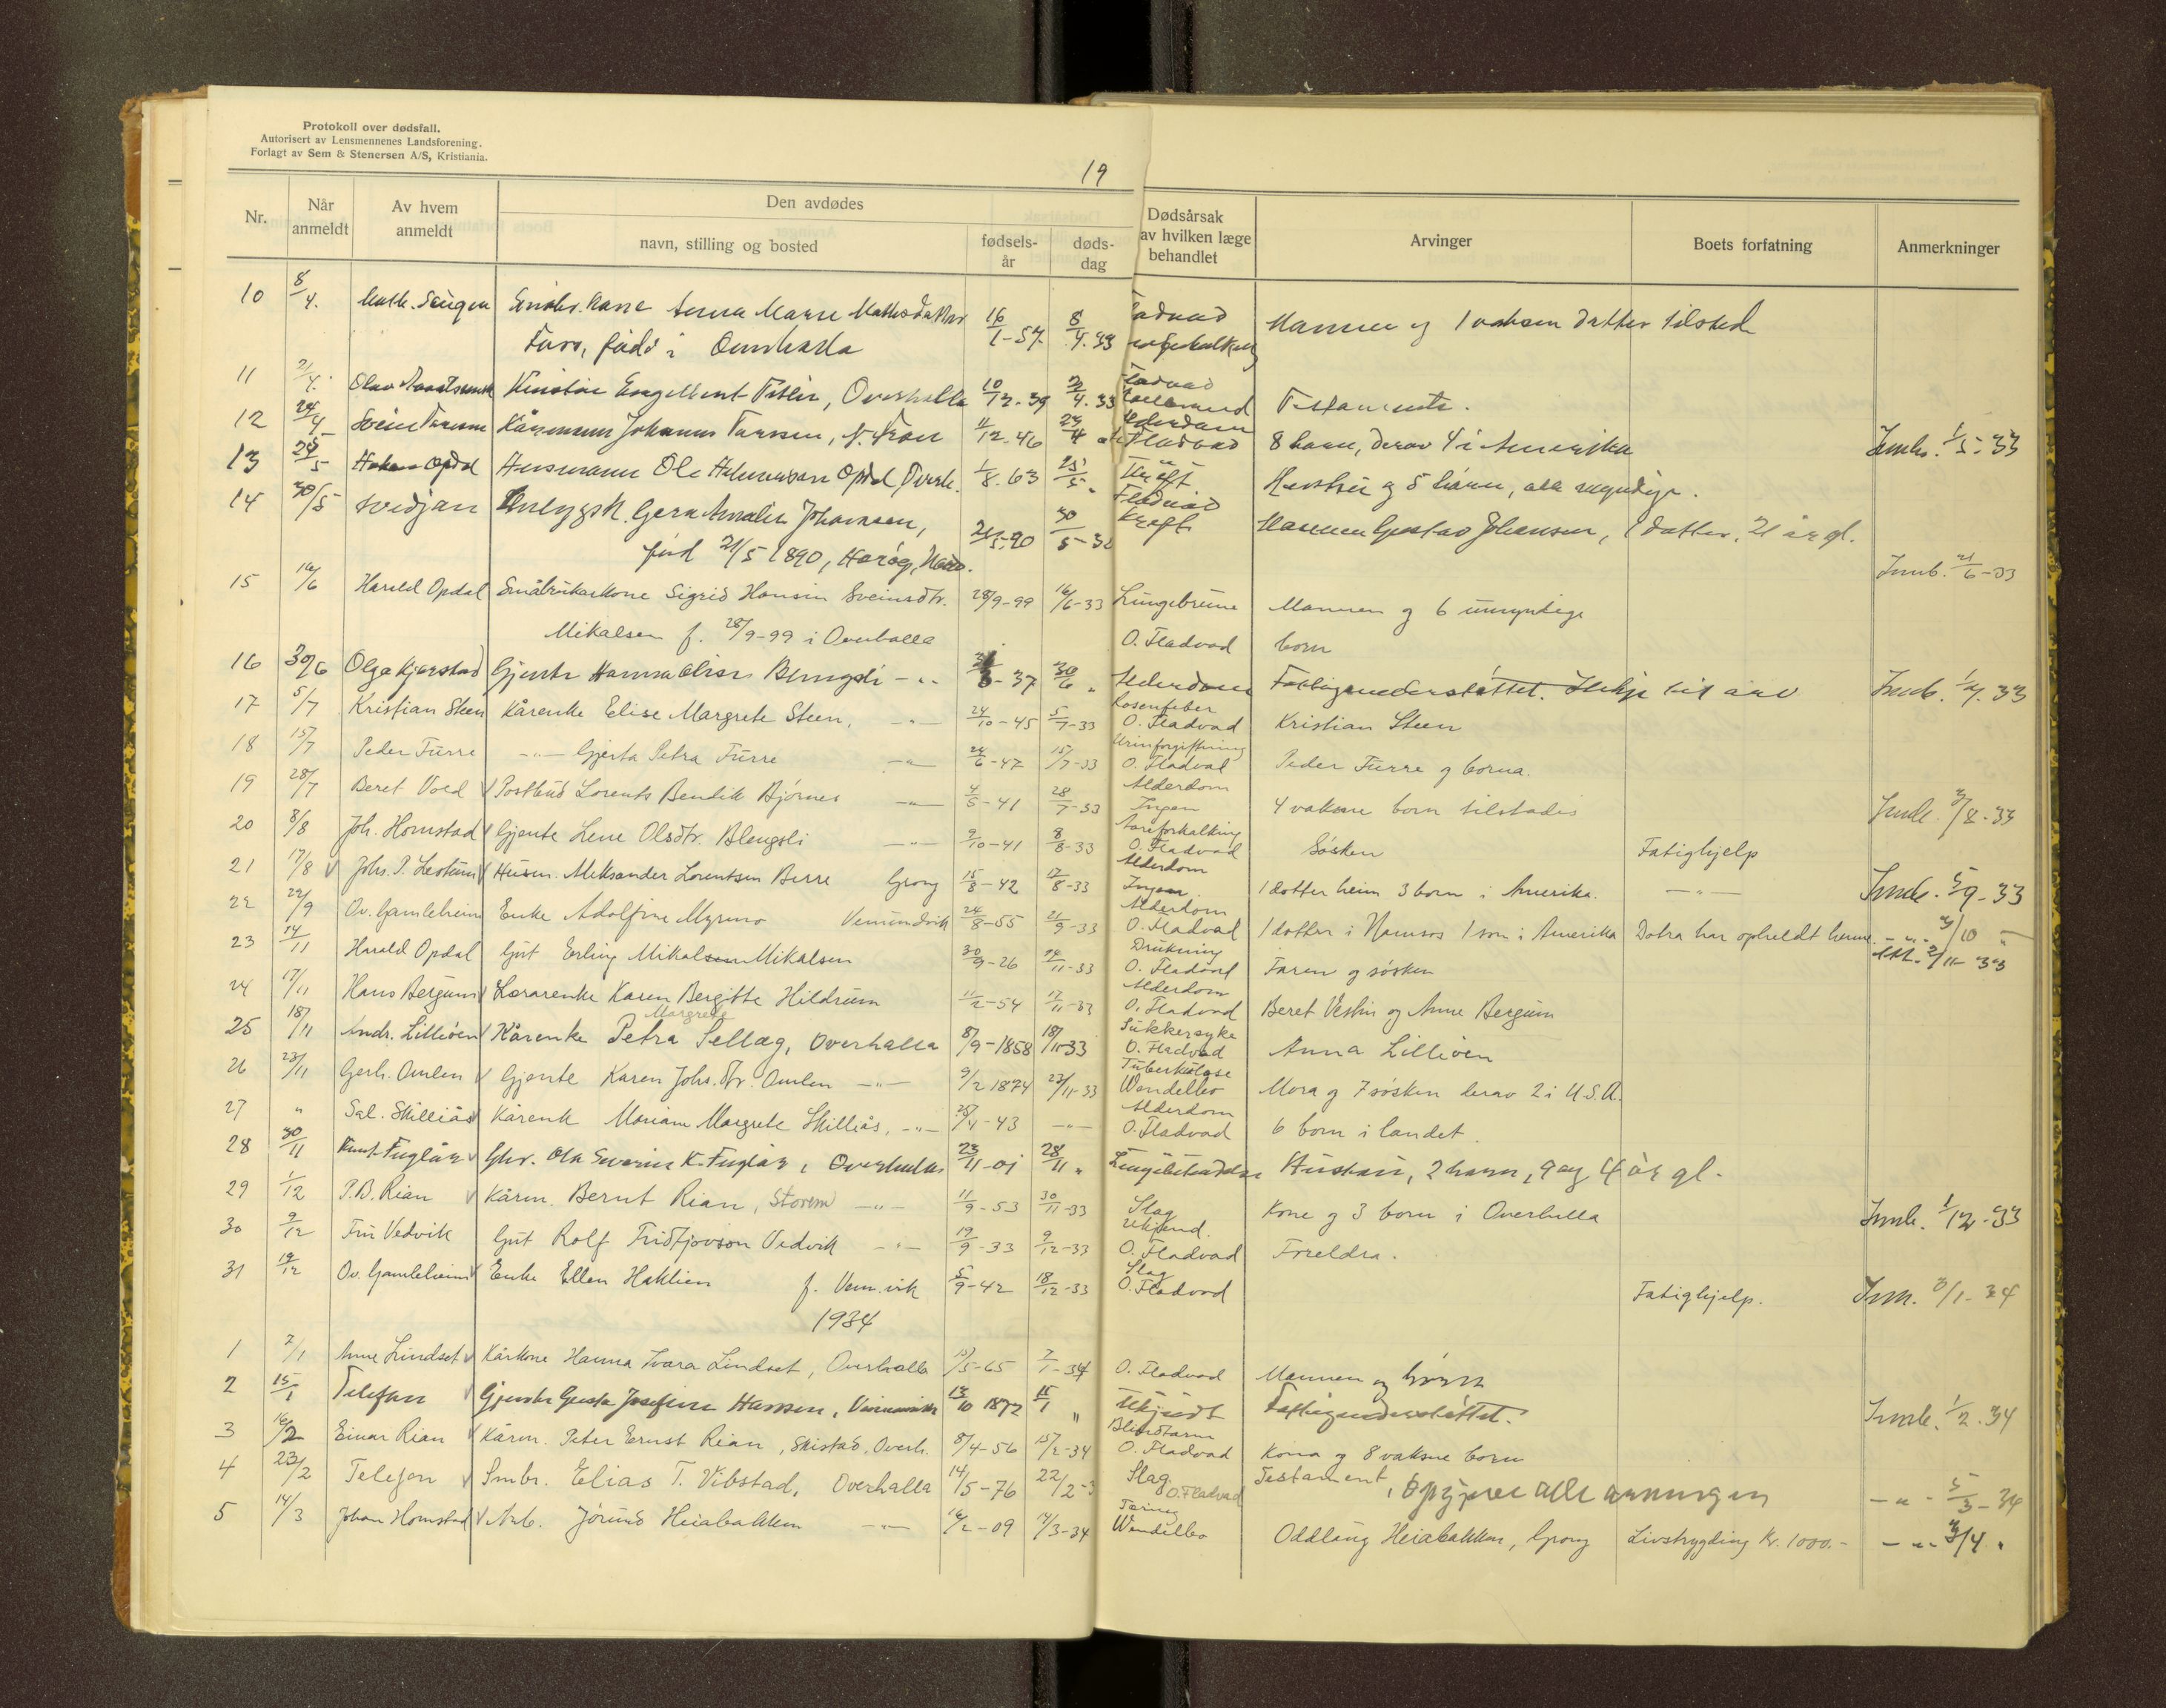 Protokoll over dødsfall.
Autorisert av Lensmennenes Landsforening.
Forlagt av Sem & Stenersen A/S, Kristiania.
19
Nr. Når anmeldt Av hvem anmeldt Den avdødes navn, stilling og bosted fødsels-år døds-dag Dødsårsak av hvilken læge behandlet Arvinger Boets forfatning Anmerkninger
10 8/4. Anna Marie 16/1-57 8/4.33 Mannen og 1 voksen datter tilsted
født i Overhalla
11 2/4. Engelbert Overhalla 10/12-39 4.33 Testamente.
12 24/4 Johannes 11/12-46 Alderdom Fladvad 8 barn, derav 4 i Amerika Innb. 1/5-33
13 Opdal Husmann Ole Opdal, Overh. 1/8.63 25/5 Kreft Hustru og 5 barn, alle myndige.
14 30/5 Svedjan Gera Amalie Johansen, 21/5-90 30/5-33 Fladvad Kreft Mannen Gustav Johansen, 1 datter, 21 år gl.
fød 21/5 1890, Innb. 21/6-33
15 16/6 Harald Opdal Småbrukarkone Sigrid Hansin Sveinsdtr. 28/9-99 16/6-33 Lungebrune Mannen og 6 umyndige
Mikalsen f. 28/9-99 i Overhalla O. Fladvad born
16 30/6 Olga Kjerstad Gjente Hanna Blengsli -"- 37 30/6 " Alderdom Fattigunderstøttet. Ikkje till arv Innb. 33
17 5/7 Kristian Steen Kårenke Elise Margrete Steen, -"- 24/10-45 5/7-33 Rosenfeber O. Fladvad Kristian Steen
18 15/7 Peder Furre -"- Gjerta Petra Furre -"- 24/6-47 15/7-33 Urinforgiftning O. Fladvad Peder Furre og borna.
19 28/7 Beret Voll Postbud Lorents Bendik Bjørnes -"- 4/5-41 28/7-33 Alderdom Ingen 4 vaksne born tilstades Innb. 3/8-33
20 8/8 Joh. Homstad Gjente Lene Olsdtr. Blengsli -"- 9/10-41 8/8-33 Aareforkalkning O. Fladvad Søsken Fatighjelp
21 17/8 Johs. P. Husm. Aleksander Lorentsen Berre Grong 15/8-42 17/8-33 Alderdom Ingen. 1 dotter heim 3 born i Amerika. -"- Innb. 5/9-33
22 22/9 Ov. Gamleheim Enke Adolfine Myrmo Vemundvik 24/8-55 21/9-33 Alderdom O. Fladvad 1 dotter i Namsos 1 son i Amerika Dotra har opheldt henne. -"- 3/10 "
23 14/11 Harald Opdal Gut Erling Mikalsen Mikalsen 30/9-26 11-33 Drukning O. Fladvad Faren og søsken 2/11-33
24 17/11 Hans Bergum Lærarenke Karen Bergitte Hildrum 11/2-54 17/11-33 Alderdom O. Fladvad Beret Vestin og Anne Bergum
25 18/11 Andr. Lilliøen Kårenke Petra Margrete Sellæg, Overhalla 8/9-1858 18/11-33 Sukkersyke O. Fladvad Anna Lilliøen
26 23/11 Gerh. Amlen Gjente Karen Johs. dtr. Amlen -"- 9/2 1874 23/11-33 Tuberkulose Wendelbo Mora og 7 søsken herav 2 i U.S.A.
27 " Sal. Skilliås Kårenk Mariane Margrete Skilliås, -"- 4-43 -"- Alderdom O. Fladvad 6 born i landet.
28 30/11 Knut Fuglår Ola Severin K. Fuglår, Overhalla 23/11-01 28/11 " Hustru, 2 barn, 9 og 4 år gl.
29 1/12 P.B. Rian Kårm. Bernt Rian, Storem -"- 11/9-53 30/11-33 Slag Kone og 3 born i Overhalla Innb. 1/12-33
30 9/12 Fru Vedvik Gut Rolf Fridtjovson Vedvik -"- 19/9-33 9/12-33 Ukjend. O. Fladvad Foreldra.
31 19/12 Ov. Gamleheim Enke Ellen Haklien f. Vem.vik 5/9-42 18/12-33 Slag O. Fladvad Fatighjelp. Inn. 3/1-34
1934
1 7/1 Anne Lindset Kårkone Hanna Ivara Lindset, Overhalla 5-65 7/1-34 O. Fladvad Mannen og born
2 15/1 Telefon Gjente Josefine Hansen, 13/10 1872 15/1 " Ukjendt Fattigunderstøttet. Innb. 1/2.34
3 16/2 Einar Rian Kårm. Peter Ernst Rian, Skistad, Overh. 8/4-56 15/2-34 Blindtarm O. Fladvad Kona og 8 vaksne born
4 23/2 Telefon Smbr. Elias T. Vibstad, Overhalla 14/5-76 22/2-3 Slag. O. Fladvad Testament, -"- 5/3-34
5 14/3 Johan Homstad Arb. Jørund Heiabakken -"- 16/2-09 14/3-34 Tæring Wendelbo Oddlaug Heiabakken, Grong Livstrygding Kr. 1000.- -"- 3/4 "